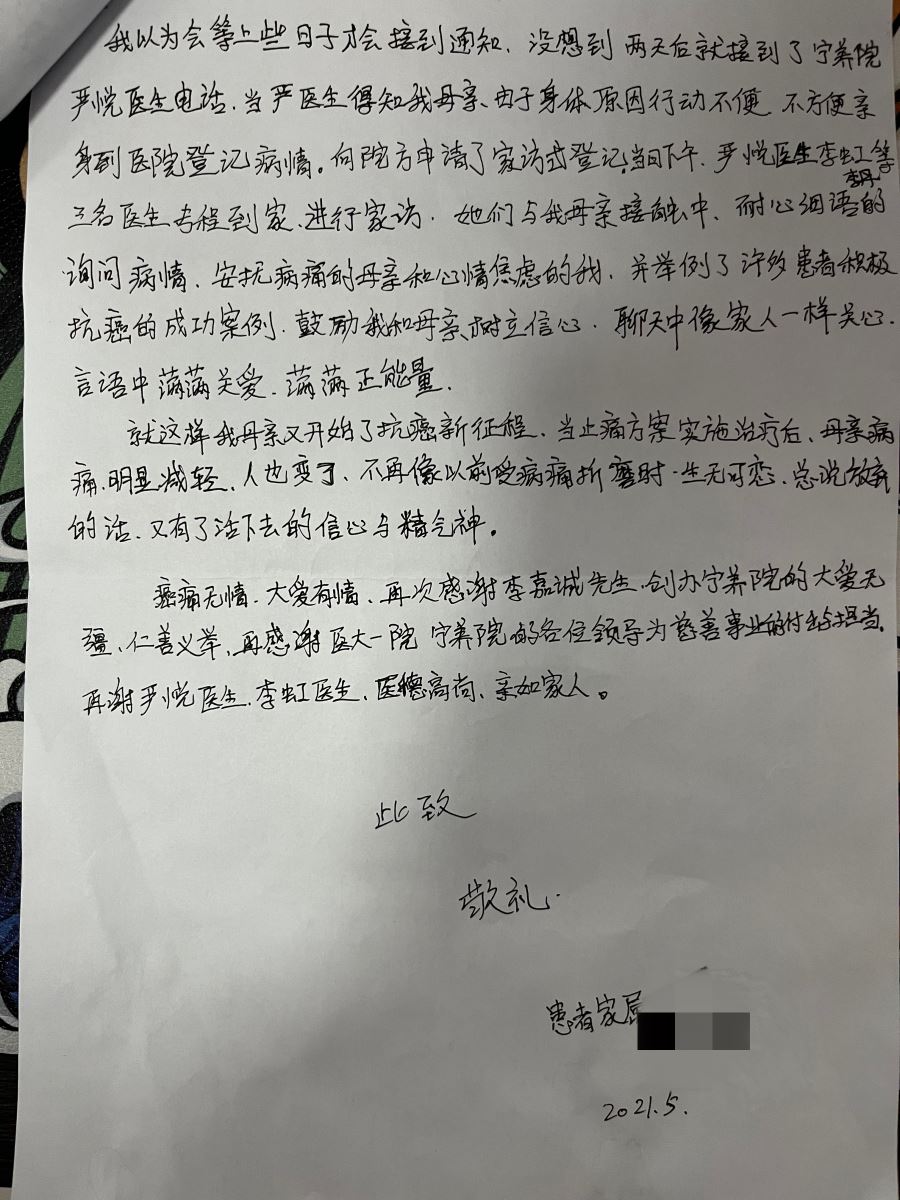 我以为会等上些日子才会接到通知、没想到两天后就接到了宁养院
严悦医生电话、当严医生得知我母亲、由于身体原因行动不便、不方便亲
身到医院登记病情。向院方申请了家访式登记,当日下午、严悦医生李虹等
李丹
三名医生专程到家、进行家访、她们与我母亲接触中、耐心细语的
询问病情、安抚病痛的母亲和心情焦虑的我、并举例了许多患者积极
抗癌的成功案例、鼓励我和母亲树立信心、聊天中像家人一样关心、
言语中满满关爱、满满正能量、
就这样我母亲又开始了抗癌新征程、当止痛方案实施治疗后、母亲病
痛、明显减轻、人也变了、不再像以前受病痛折磨时、生无可恋、总说放弃
的话、又有了活下去的信心与精气神。
癌痛无情、大爱有情、再次感谢李嘉诚先生、创办宁养院的大爱无
疆、仁善义举、再感谢医大一院宁养院的各位领导为慈善事业的付出与担当、
再谢严悦医生、李虹医生、医德高尚、亲如家人。
此致
敬礼.
患者家属
2021.5.